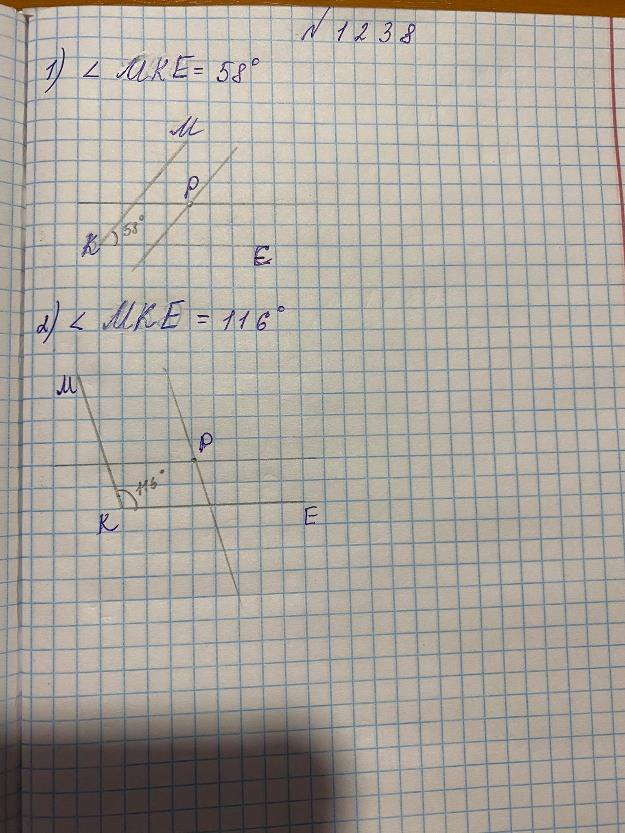 № 1238
1) ∠ MKE = 58°
M
P
58°
K
E
2) ∠ MKE = 116°
M
P
116°
K
E